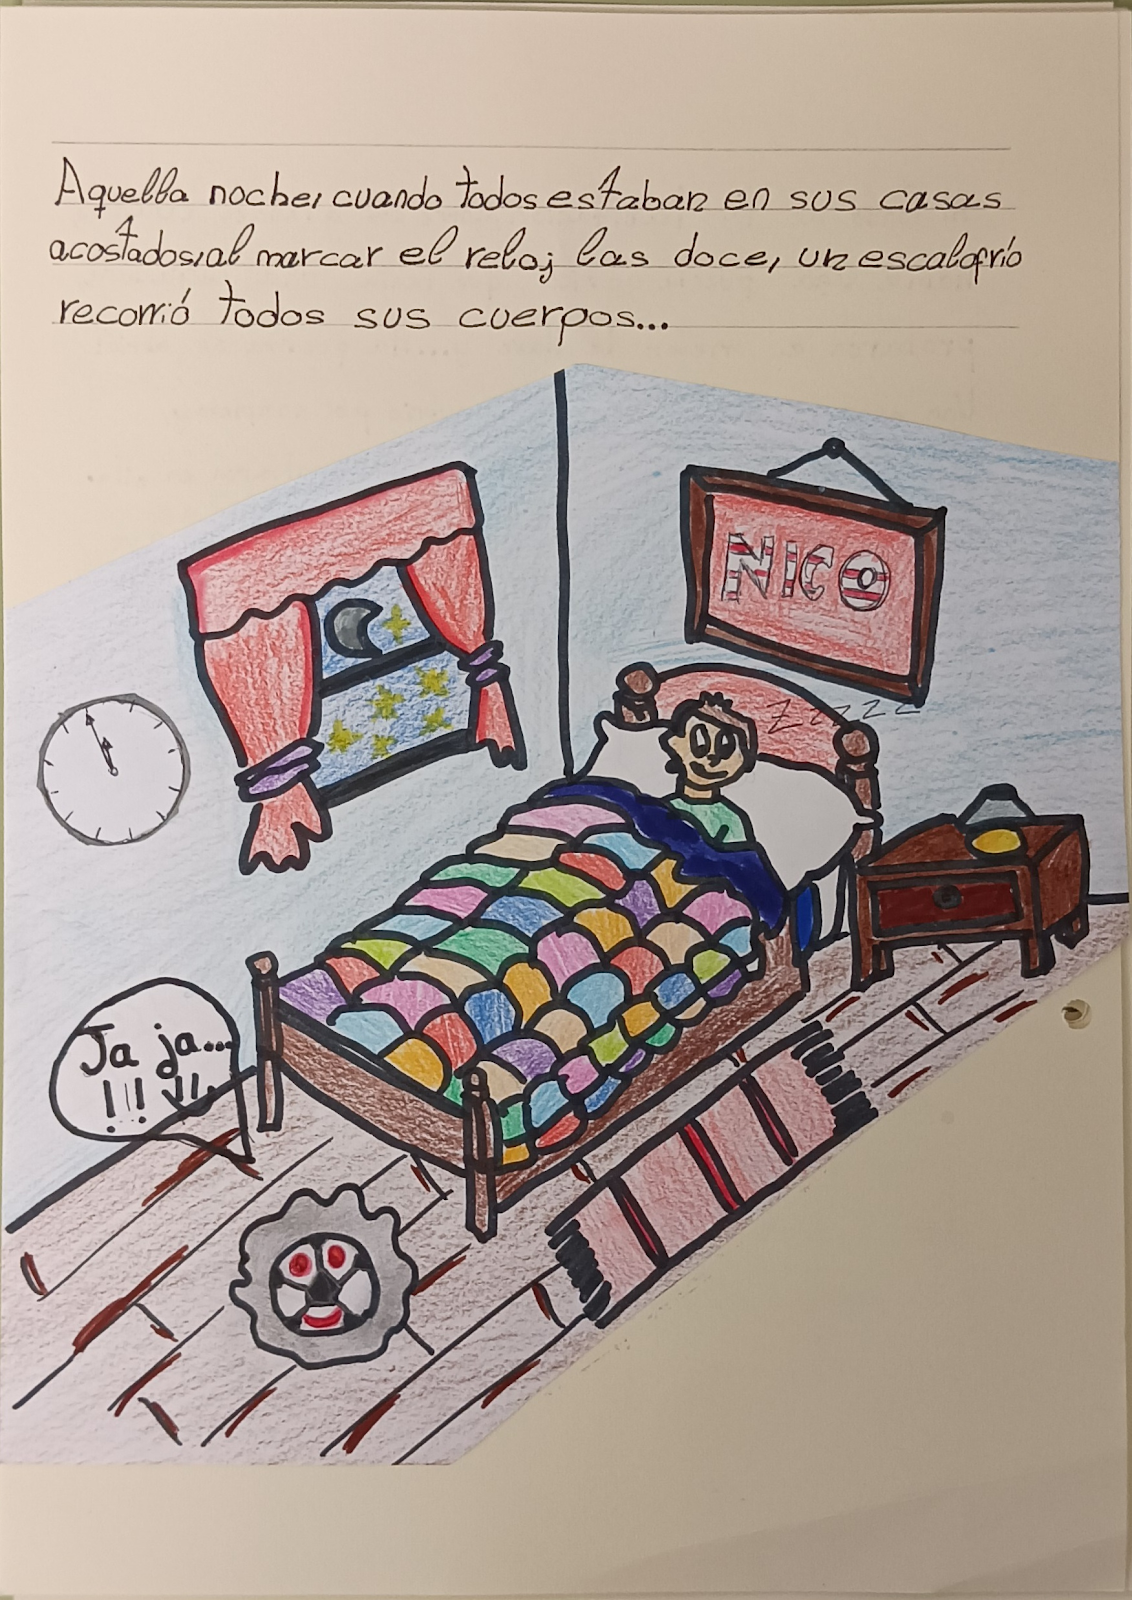 Aquella noche, cuando todos estaban en sus casas
acostados, al marcar el reloj las doce, un escalofrío
recorrió todos sus cuerpos...
NICO
Zzzzz
Ja ja...
!!! JJ